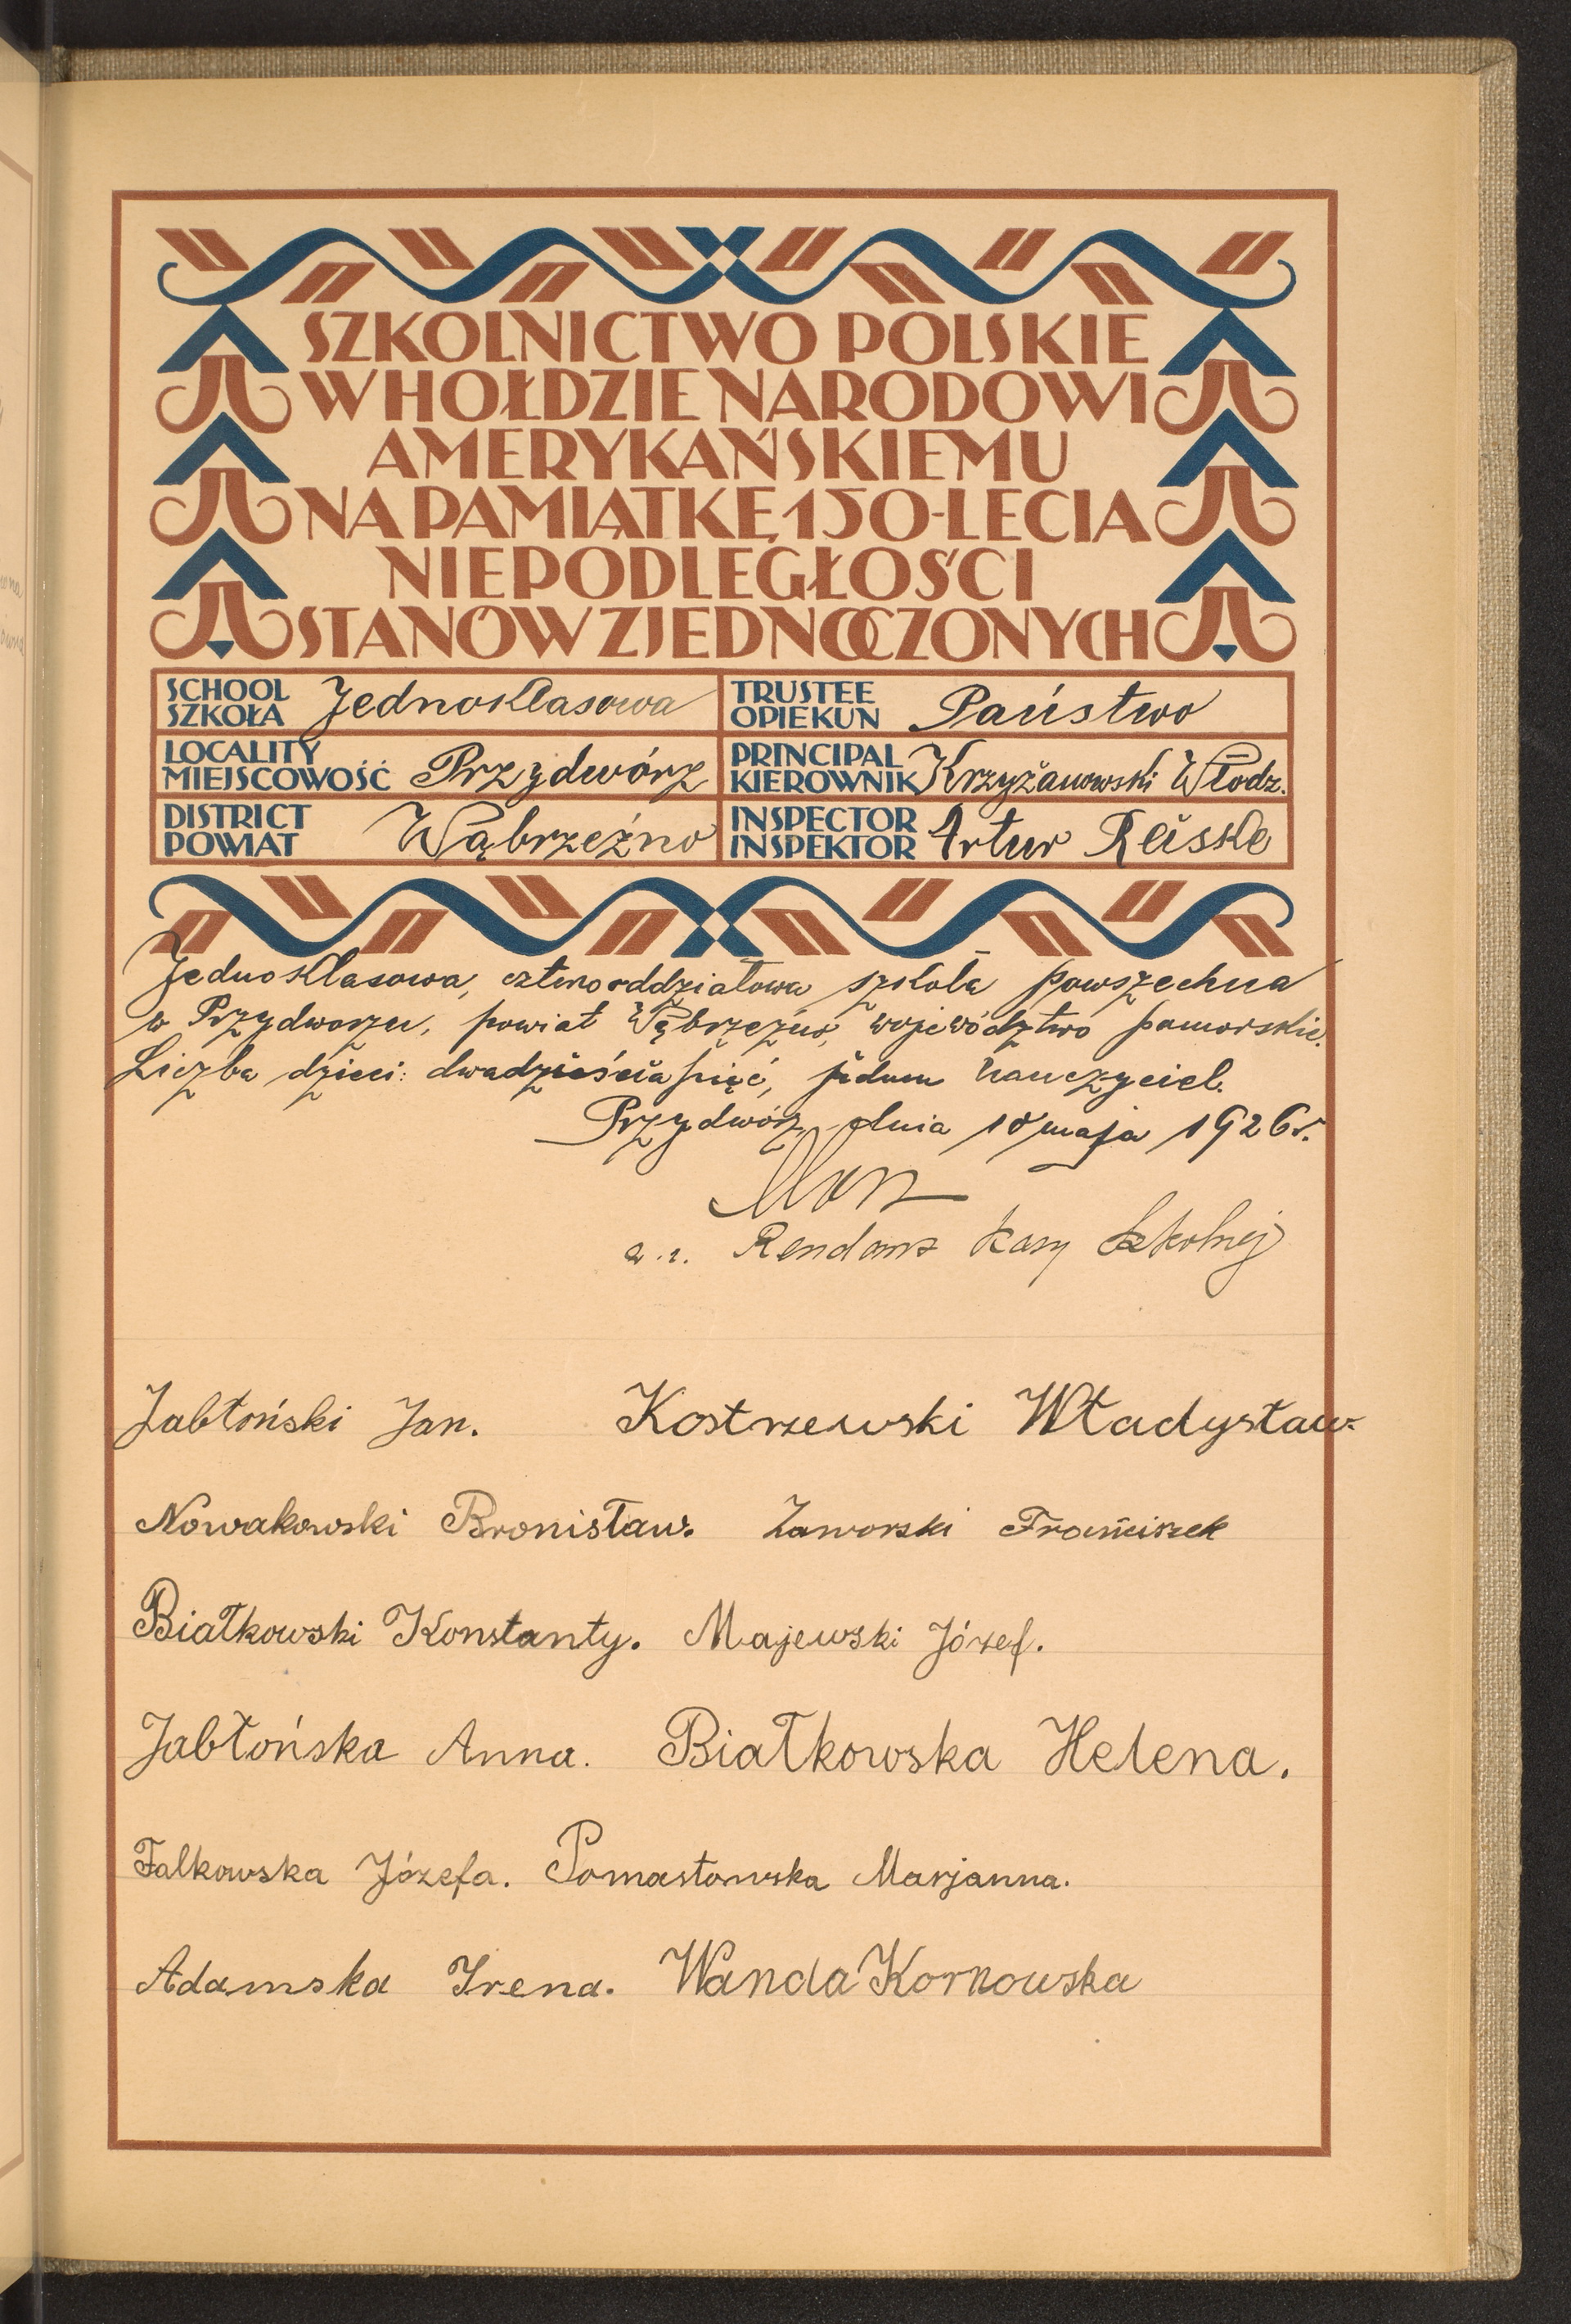 SZKOLNICTWO POLSKIE
W HOŁDZIE NARODOWI
AMERYKAŃSKIEMU
NA PAMIĄTKĘ 150-LECIA
NIEPODLEGŁOŚCI
STANÓW ZJEDNOCZONYCH
SCHOOL SZKOŁA Jednoklasowa TRUSTEE OPIEKUN Państwo
LOCALITY MIEJSCOWOŚĆ Przydwórz PRINCIPAL KIEROWNIK Krzyżanowski Włodz.
DISTRICT POWIAT Wąbrzeźno INSPECTOR INSPEKTOR Artur Reiske
Jednoklasowa, czterooddziałowa szkoła powszechna
w Przydworzu, powiat Wąbrzeźno, województwo pomorskie.
Liczba dzieci: dwadzieścia pięć, jeden nauczyciel.
Przydwórz, dnia 10 maja 1926 r.
Rendant Kasy Szkolnej
Jabłoński Jan. Kostrzewski Władysław.
Nowakowski Bronisław. Zaworski Franciszek
Białkowski Konstanty. Majewski Józef.
Jabłońska Anna. Białkowska Helena.
Falkowska Józefa. Pomastowska Marjanna.
Adamska Irena. Wanda Kornowska